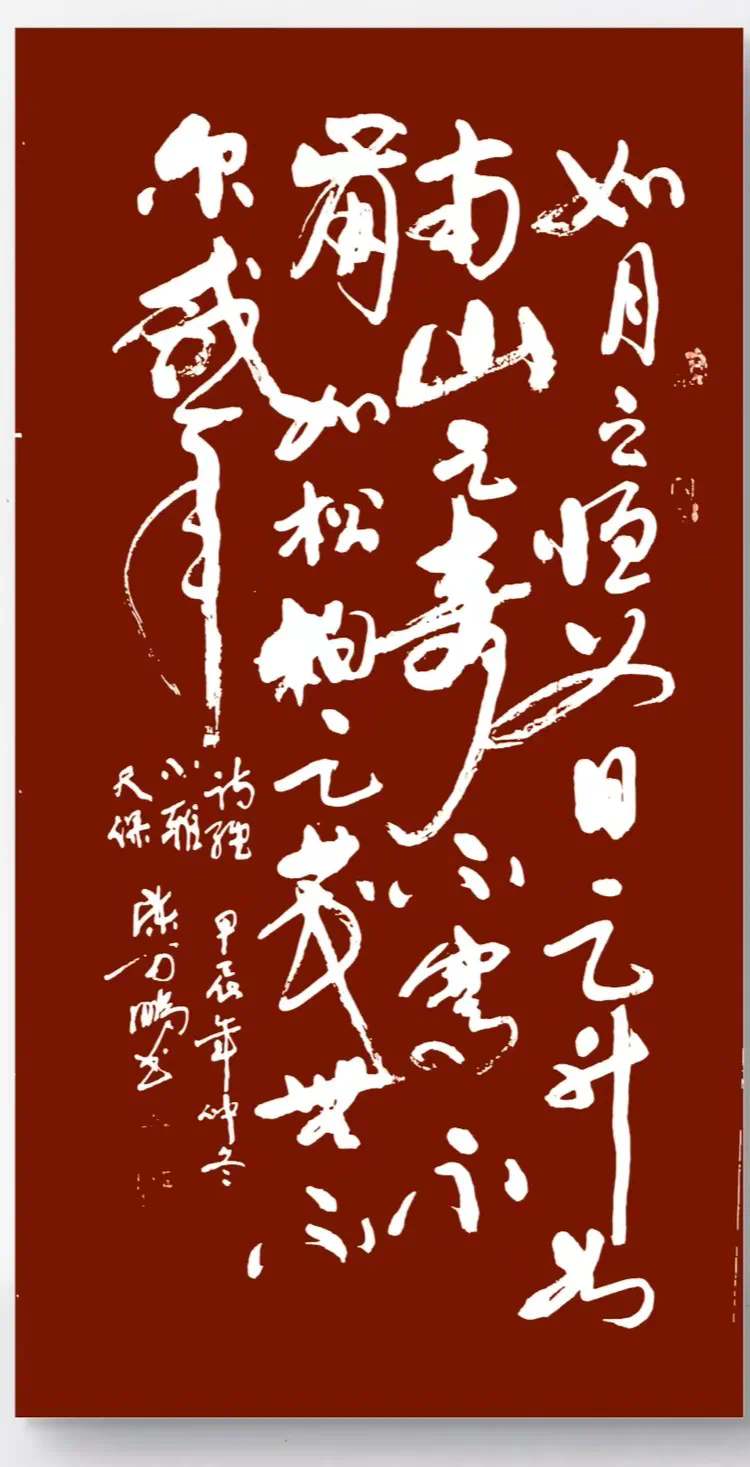 如月之恒如日之升如
南山之寿不骞不
崩如松柏之茂無不
尔或承
诗经
小雅
天保
甲辰年仲冬
鹏书